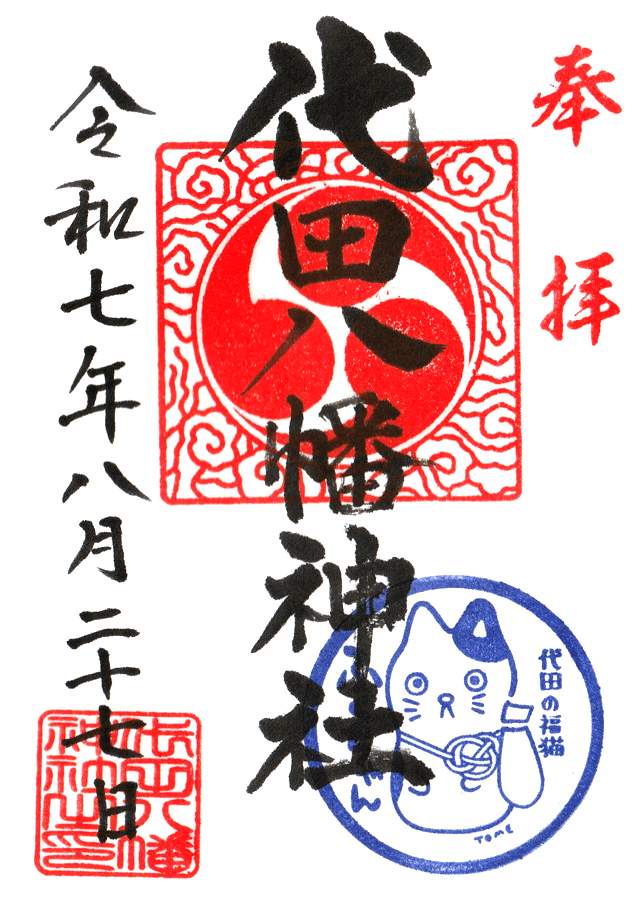 奉拝
代田八幡神社
令和七年八月二十七日
代田の福猫
TOME
代田八幡
神社之印